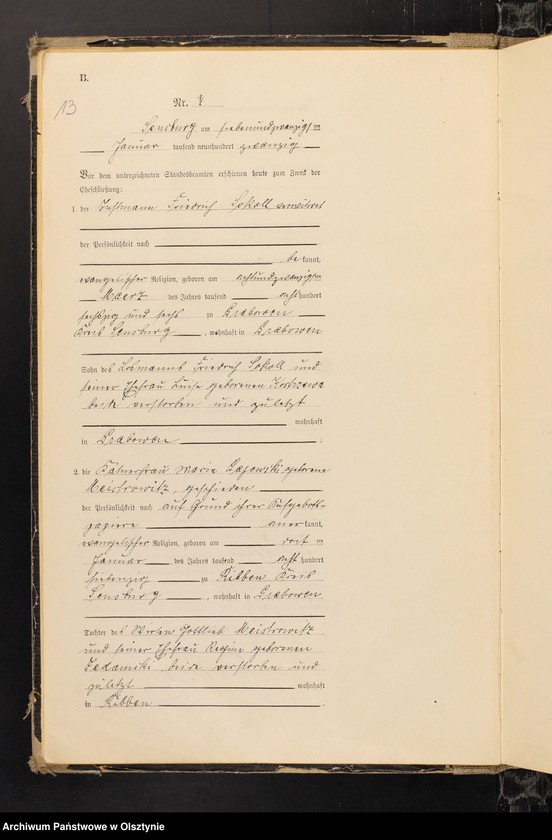 B.
13
Nr. 7
Sensburg am siebenundzwanzigsten
Januar tausend neunhundert zwanzig
Vor dem unterzeichneten Standesbeamten erschienen heute zum Zweck der
Eheschließung:
1. der Instmann Friedrich Sokoll verwitwet
der Persönlichkeit nach
be kannt,
evangelischer Religion, geboren am achtundzwanzigsten
Maerz des Jahres tausend acht hundert
sechzig und sechs zu Grabowen
Kreis Sensburg, wohnhaft in Grabowen
Sohn des Losmanns Friedrich Sokoll und
seiner Ehefrau Luise geborenen
beide verstorben und zuletzt
wohnhaft
in Grabowen.
2. die Kätnerfrau Marie Gajewski geborene
Meistrowitz, geschieden
der Persönlichkeit nach auf Grund ihrer Aufgebots-
papiere aner kannt,
evangelischer Religion, geboren am
Januar des Jahres tausend acht hundert
siebenzig zu Ribben Kreis
Sensburg, wohnhaft in Grabowen
Tochter des Wirten Gottlieb Meistrowitz
und seiner Ehefrau Regine geborenen
beide verstorben und
zuletzt wohnhaft
in Ribben.
Archiwum Państwowe w Olsztynie